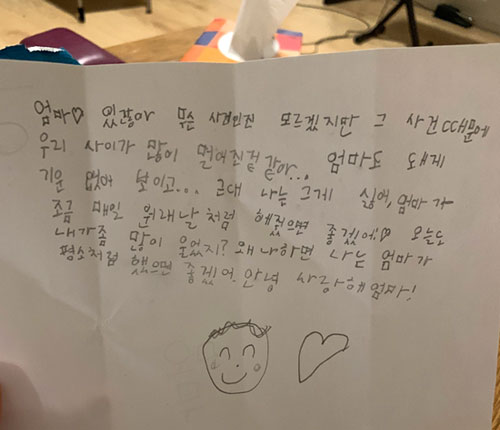 엄마♡ 있잖아 무슨 사건인진 모르겠지만 그 사건 때문에
우리 사이가 많이 멀어진것 같아... 엄마도 되게
기운 없어 보이고... 근대 나는 그게 싫어, 엄마가
조금 매일 원래날처럼 해줬으면 좋겠어!♡ 오늘도
내가좀 많이 울었지? 왜냐하면 나는 엄마가
평소처럼 했으면 좋겠어. 안녕 사랑해 엄마!